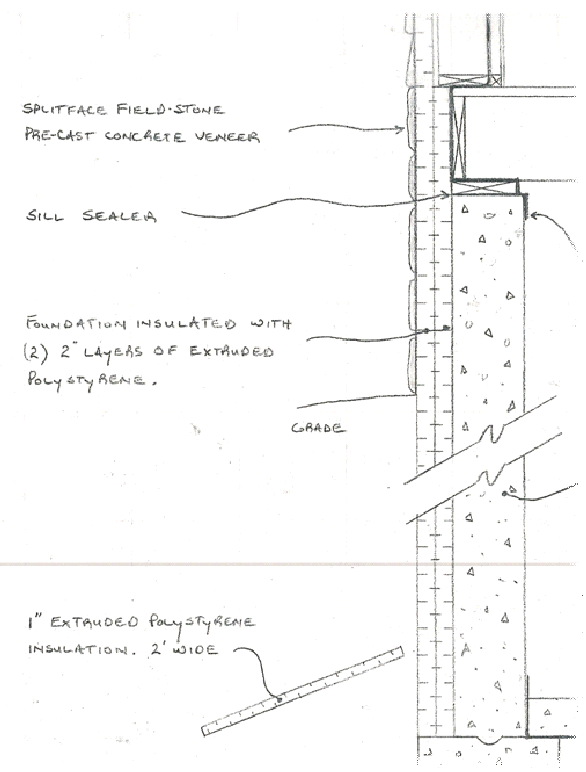 SPLITFACE FIELD-STONE
PRE-CAST CONCRETE VENEER
SILL SEALER
FOUNDATION INSULATED WITH
(2) 2" LAYERS OF EXTRUDED
POLYSTYRENE.
GRADE
1" EXTRUDED POLYSTYRENE
INSULATION. 2' WIDE